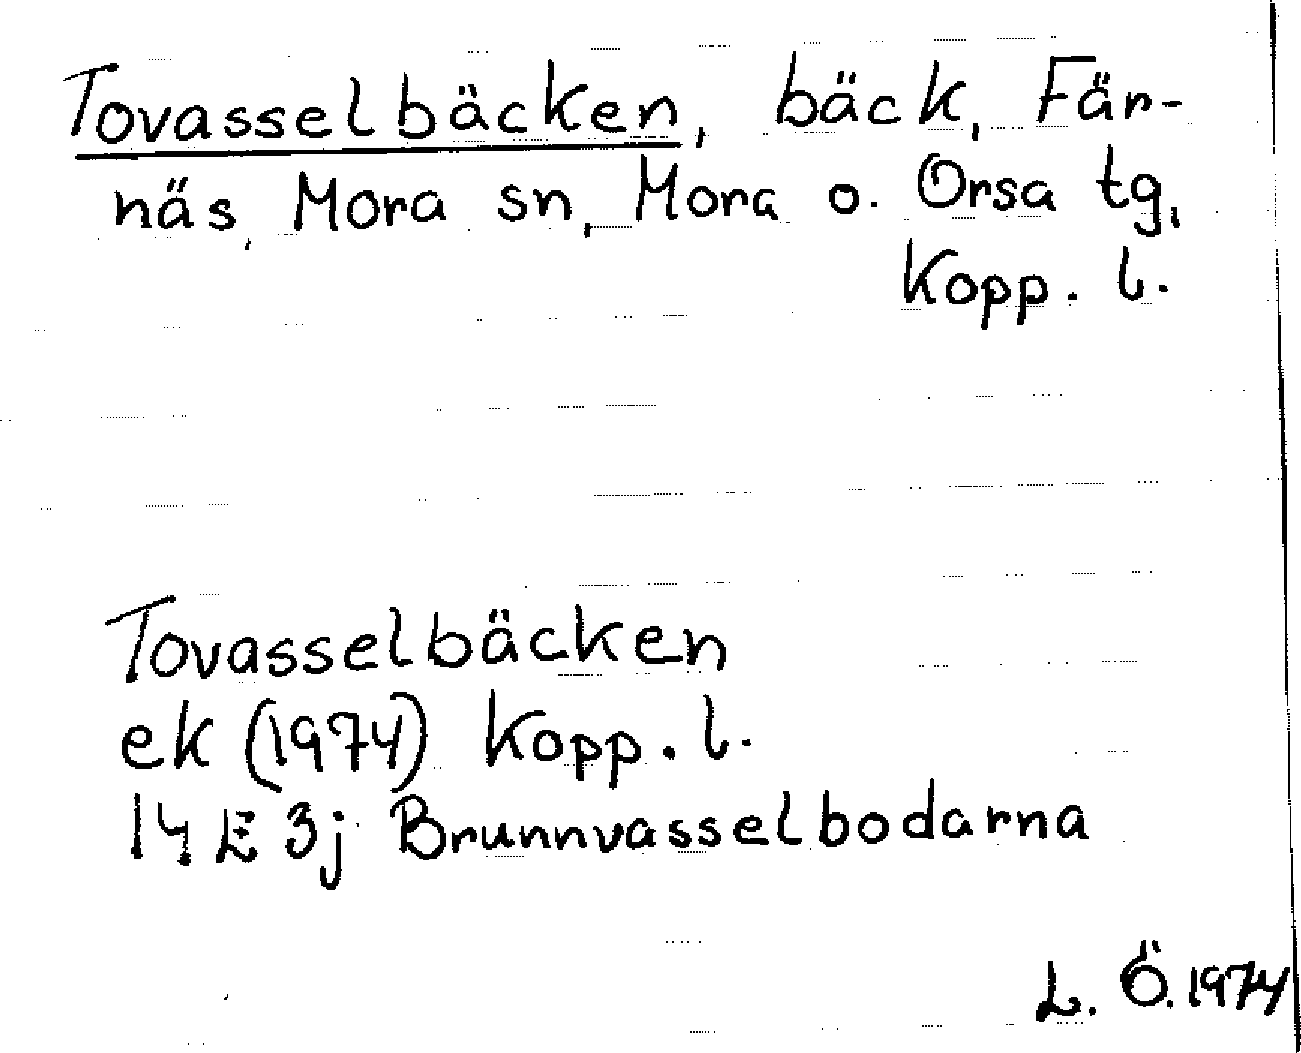 Tovasselbäcken, bäck, Fär-
näs, Mora sn, Mora o. Orsa tg,
Kopp. l.
Tovasselbäcken
ek (1974) Kopp. l.
14 E 3j Brunnvasselbodarna
L. Ö. 1974